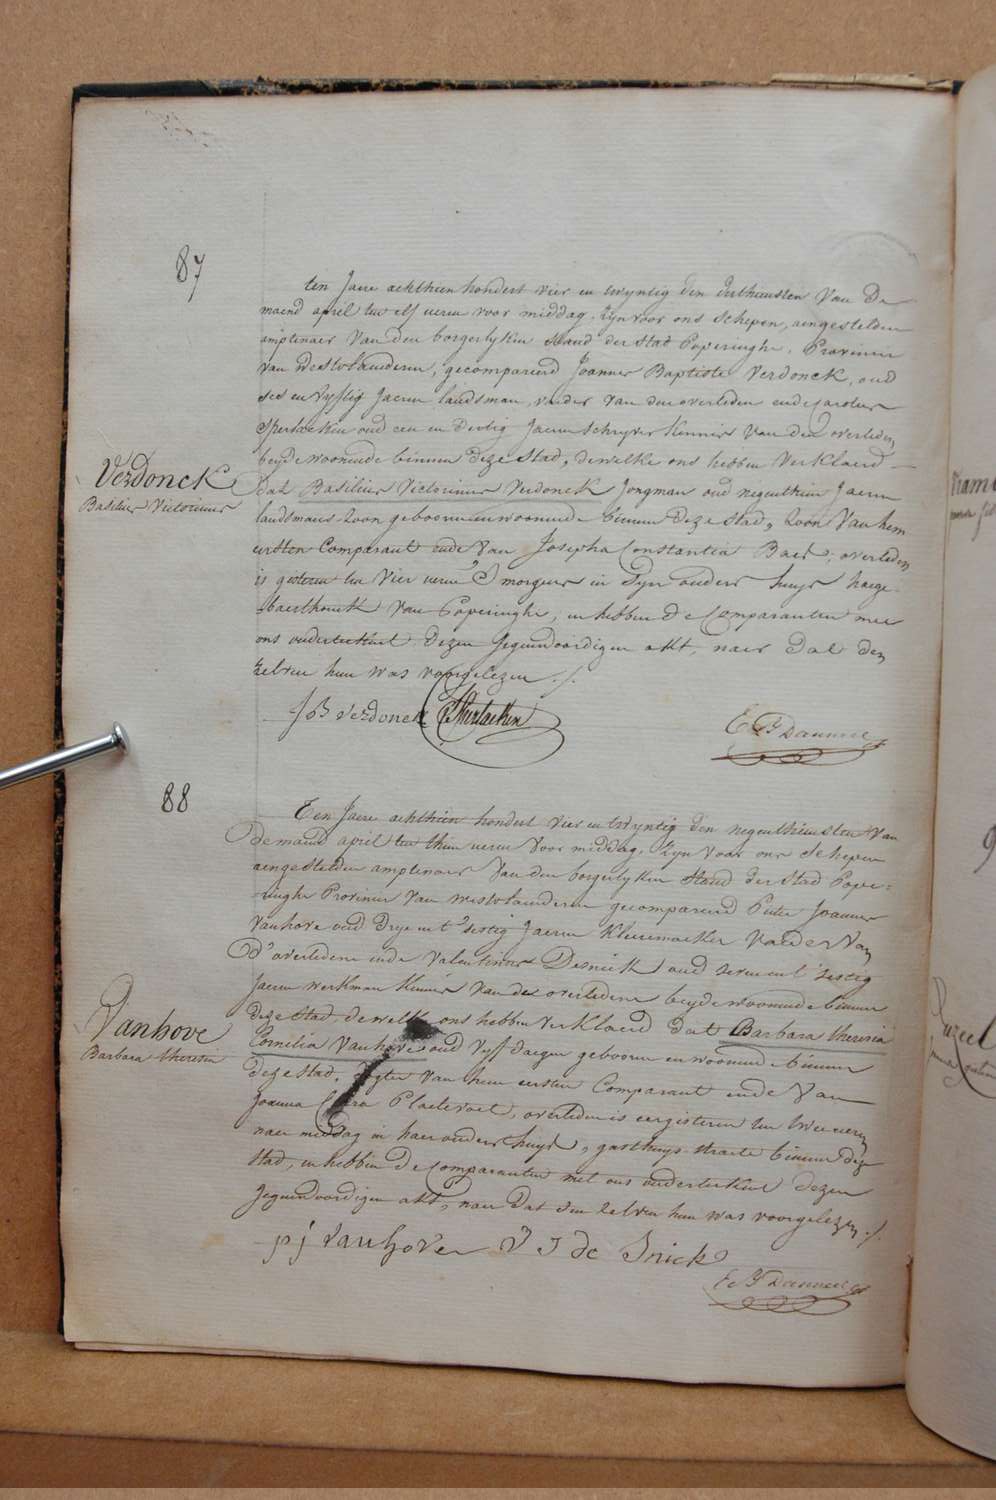 87
ten Jaere achthien hondert vier en twyntig den derthiensten van de
maend april ten elf uren voor middag, zyn voor ons schepen, aengestelden
amptenaer van den borgerlyken stand der stad Poperinghe, Provincie
van Westvlaenderen, gecompareerd Joannes Baptiste Verdonck, oud
ses en vyftig Jaeren landsman, vader van den overleden ende
oud een en dertig Jaeren schryver kennis van den overleden,
beyde woonende binnen deze stad, dewelke ons hebben verklaerd
Verdonck
Basilius Victorinus
dat Basilius Victorinus Verdonck Jongman oud negenthien Jaeren
landsmans-zoon geboren en woonende binnen deze stad, zoon van hem
eersten Comparant ende van Josepha Constantia Baes, overleden
is gisteren ten vier uren 's morgens in zyn ouders huys haege-
-baerthoeck van Poperinghe, en hebben de Comparanten met
ons onderteekent dezen jegenwoordigen akt, naer dat den
zelven hun was voorgelezen ./.
J B Verdonck
88
Ten Jaere achthien hondert vier en twyntig den negenthiensten van
de maend april ten thien uren voor middag, zyn voor ons schepen
aengestelden amptenaer van den borgerlyken stand der stad Pope=
-ringhe Provincie van westvlaenderen gecompareerd Pieter Joannes
Vanhove oud drye en t'sestig Jaeren kleermaeker vader van
d'overledene ende Valentinus Desnick oud zeven en t'sestig
Jaeren werkman kennis van de overledene beyde woonende binnen
Vanhove
Barbara theresia
deze stad, dewelke ons hebben verklaerd dat Barbara theresia
Cornilia Vanhove oud vyf daegen geboren en woonende binnen
deze stad, dogter van hem eersten Comparant ende van
Joanna Clara Plaetevoet, overleden is eergisteren ten twee uren
naer middag in haer ouders huys, gasthuys-straete binnen deze
stad, en hebben de comparanten met ons onderteekent dezen
jegenwoordigen akt, naer dat den zelven hun was voorgelezen ./.
p j vanhove V J de Snick